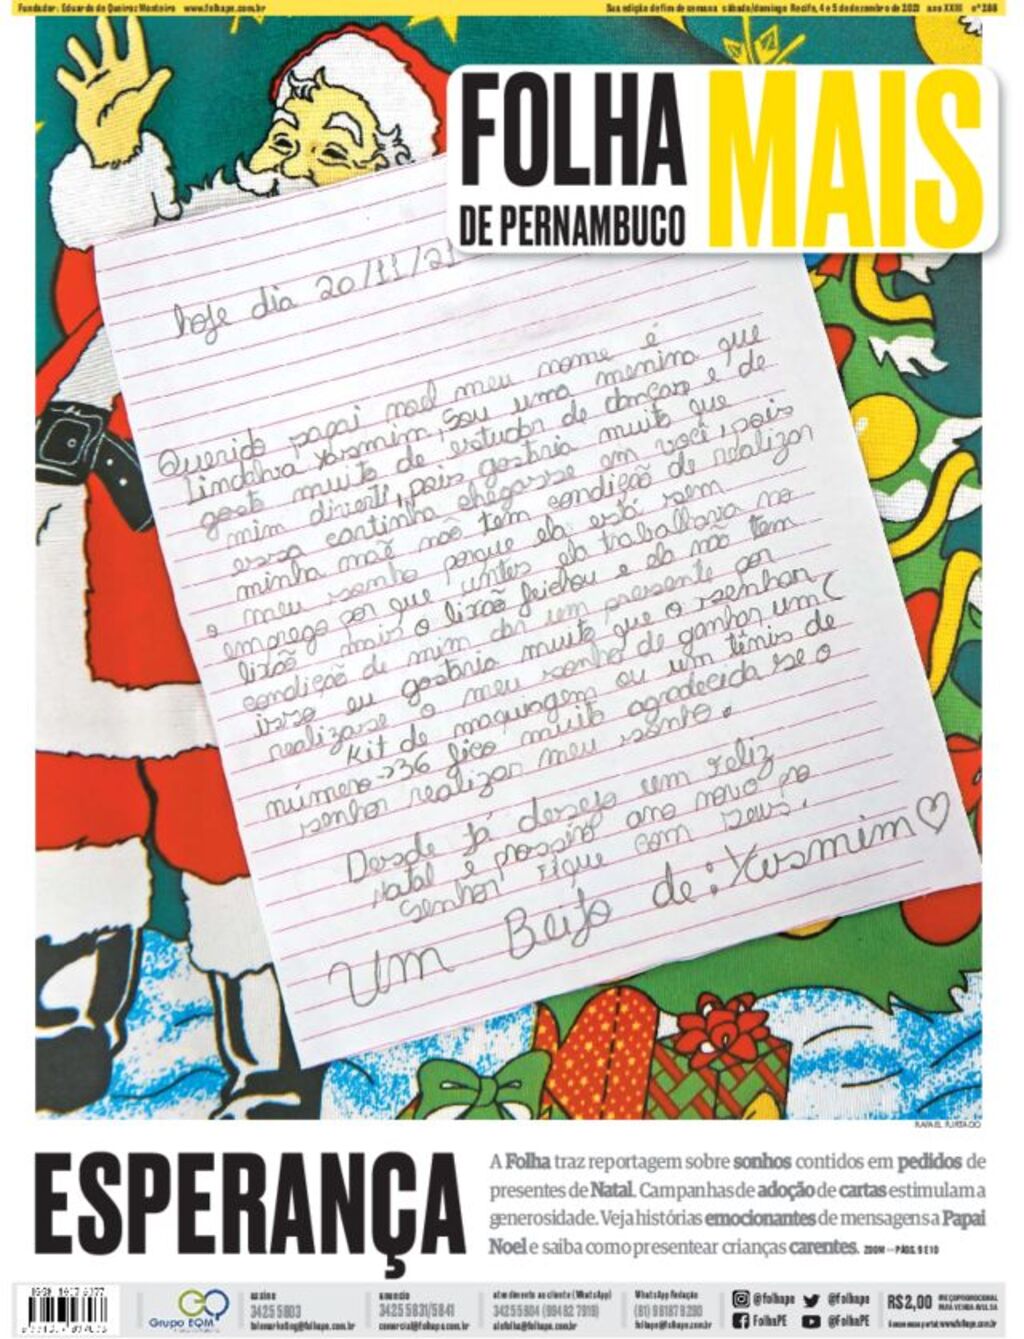 Fundador: Eduardo de Queiroz Monteiro www.folhape.com.br
Sua edição de fim de semana sábado/domingo Recife, 4 e 5 de dezembro de 2021 ano XXIII nº 288
FOLHA
DE PERNAMBUCO
MAIS
hoje dia 20/11/21
Querido papai noel meu nome é
Lindalva Yasmim, Sou uma menina que
gosto muito de estudar de dançar e de
mim diverti, pois gostaria muito que
essa cartinha chegasse em você, pois
minha maẽ naõ tem condição de realizar
o meu sonho porque ela está sem
emprego por que antes ela trabalhava no
lixão mais o lixão feichou e ela naõ tem
condição de mim dar um presente por
isso eu gostaria muito que o senhor
realizase o meu sonho de ganhar um(
Kit de maquiagem ou um tênis de
número→36 fico muito agradecida se o
senhor realizar meu sonho.
Desde já desejo um Feliz
Natal e prossimo ano novo pro
Senhor Fique com Deus.
Um Beijo de: Yasmim♡
RAFAEL FURTADO
ESPERANÇA
A Folha traz reportagem sobre sonhos contidos em pedidos de
presentes de Natal. Campanhas de adoção de cartas estimulam a
generosidade. Veja histórias emocionantes de mensagens a Papai
Noel e saiba como presentear crianças carentes. ZOOM — PÁGS. 9 E 10
Grupo EQM
assine
3425 5803
telemarketing@folhape.com.br
anuncie
3425 5831/5841
comercial@folhape.com.br
atendimento ao cliente (WhatsApp)
3425 5804 (99482 7919)
alofolha@folhape.com.br
WhatsApp Redação
(81) 98187 8290
folhape@folhape.com.br
@folhape
@folhape
FolhaPE
@FolhaPE
R$ 2,00
PREÇO PROMOCIONAL
PARA VENDA AVULSA